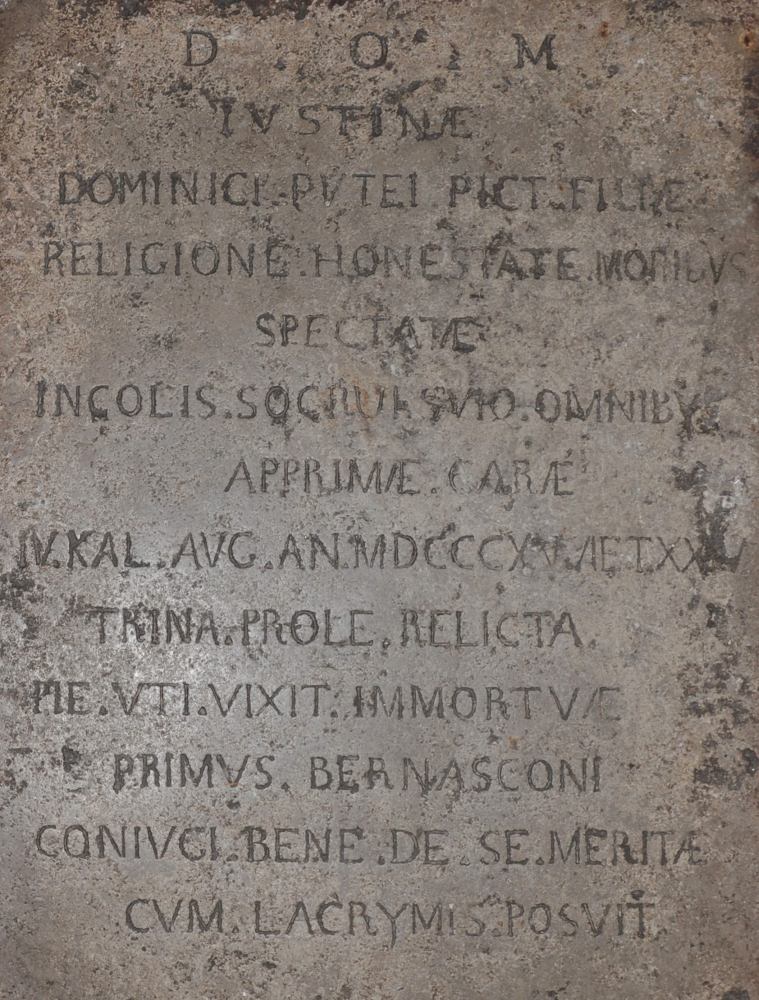 D . O . M .
IVSTINÆ
DOMINICI . PVTEI PICT . FILIÆ
RELIGIONE . HONESTATE . MORIBVS
SPECTATÆ
INCOLIS . SOCRUI SVIO . OMNIBVS
APPRIMÆ . CARÆ
IV . KAL . AVG . AN . MDCCCXV .
TRINA . PROLE . RELICTA .
PIE . VTI . VIXIT . IMMORTVÆ
PRIMVS . BERNASCONI
CONIVGI . BENE . DE . SE . MERITÆ
CVM . LACRYMIS . POSVIT .